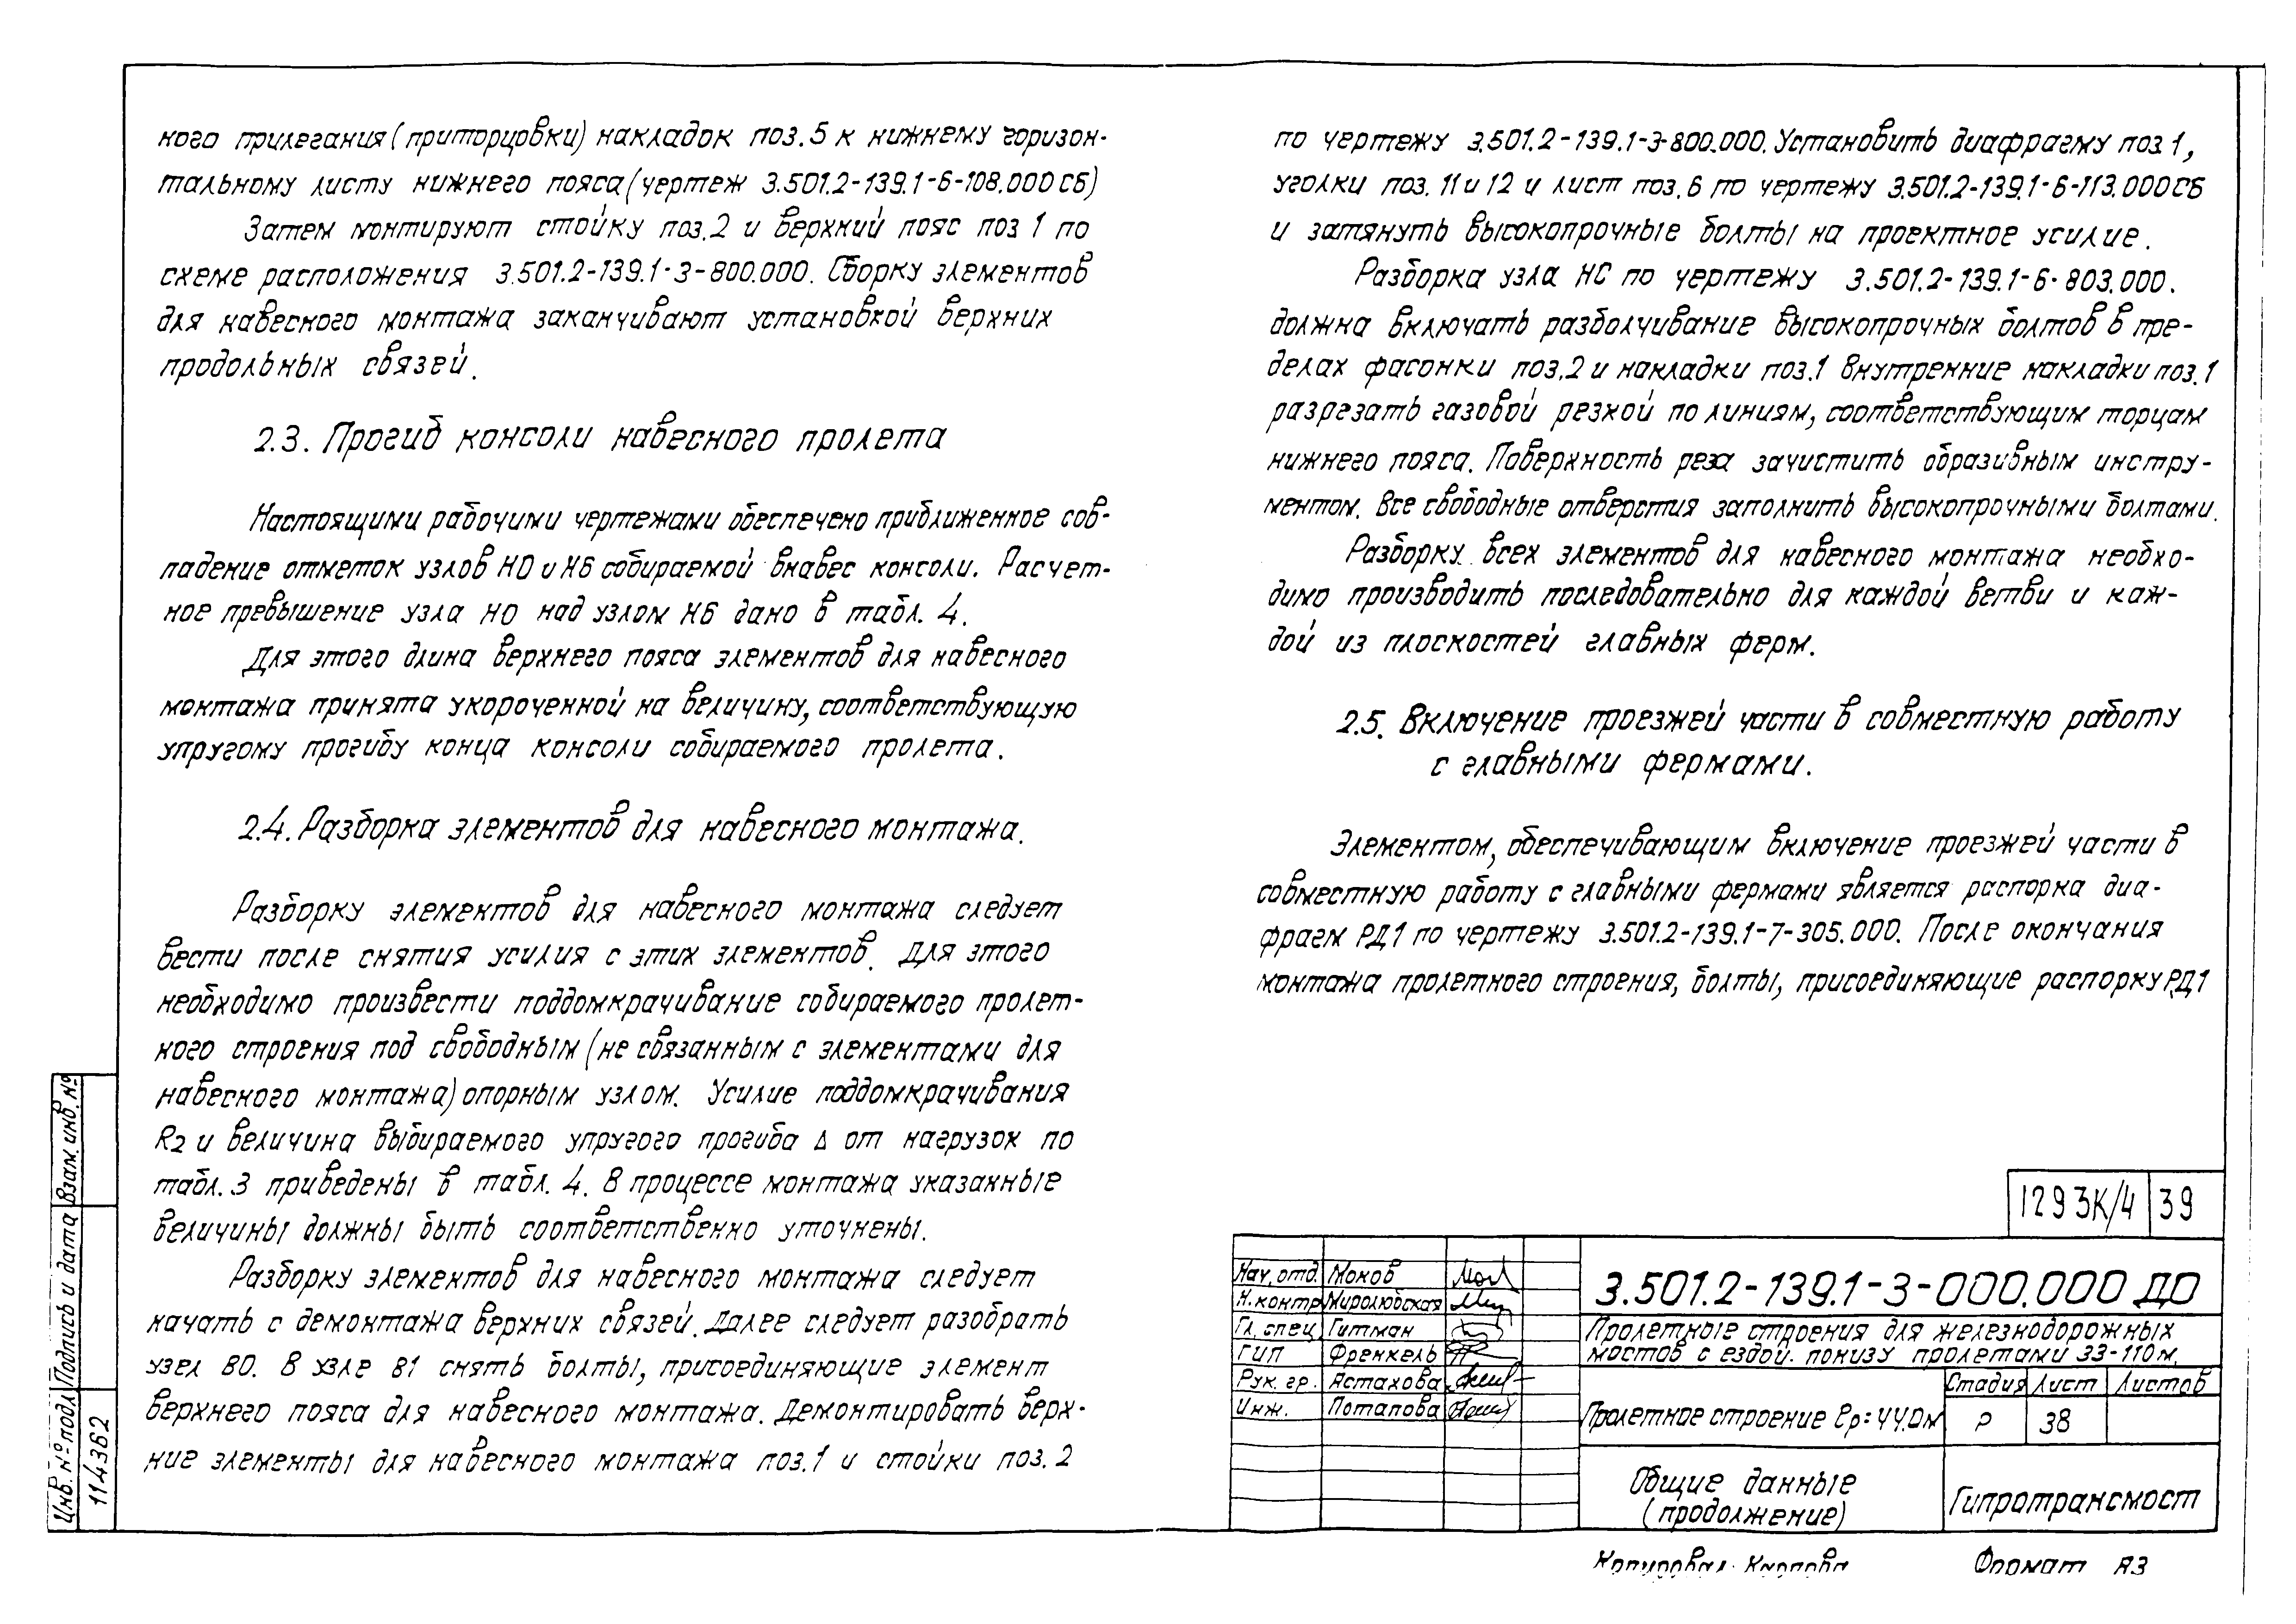 ного прилегания (приторцовки) накладок поз. 5 к нижнему горизон-
тальному листу нижнего пояса (чертеж 3.501.2-139.1-6-108.000 СБ)
Затем монтируют стойку поз. 2 и верхний пояс поз 1 по
схеме расположения 3.501.2-139.1-3-800.000. Сборку элементов
для навесного монтажа заканчивают установкой верхних
продольных связей.
2.3. Прогиб консоли навесного пролета
Настоящими рабочими чертежами обеспечено приближенное сов-
падение отметок узлов Н0 и Н6 собираемой внавес консоли. Расчет-
ное превышение узла Н0 над узлом Н6 дано в табл. 4.
Для этого длина верхнего пояса элементов для навесного
монтажа принята укороченной на величину, соответствующую
упругому прогибу конца консоли собираемого пролета.
2.4. Разборка элементов для навесного монтажа.
Разборку элементов для навесного монтажа следует
вести после снятия усилия с этих элементов. Для этого
необходимо произвести поддомкрачивание собираемого пролет-
ного строения под свободным (не связанным с элементами для
навесного монтажа) опорным узлом. Усилие поддомкрачивания
R2 и величина выбираемого упругого прогиба Δ от нагрузок по
табл. 3 приведены в табл. 4. В процессе монтажа указанные
величины должны быть соответственно уточнены.
Разборку элементов для навесного монтажа следует
начать с демонтажа верхних связей. Далее следует разобрать
узел В0. В узле В1 снять болты, присоединяющие элемент
верхнего пояса для навесного монтажа. Демонтировать верх-
ние элементы для навесного монтажа поз. 1 и стойки поз. 2
по чертежу 3.501.2-139.1-3-800.000. Установить диафрагму поз 1,
уголки поз. 11 и 12 и лист поз. 6 по чертежу 3.501.2-139.1-6-113.000 СБ
и затянуть высокопрочные болты на проектное усилие.
Разборка узла НС по чертежу 3.501.2-139.1-6-803.000.
должна включать разболчивание высокопрочных болтов в пре-
делах фасонки поз. 2 и накладки поз. 1 Внутренние накладки поз. 1
разрезать газовой резкой по линиям, соответствующим торцам
нижнего пояса. Поверхность реза зачистить образивным инстру-
ментом. Все свободные отверстия заполнить высокопрочными болтами.
Разборку всех элементов для навесного монтажа необхо-
димо производить последовательно для каждой ветви и каж-
дой из плоскостей главных ферм.
2.5. Включение проезжей части в совместную работу
с главными фермами.
Элементом, обеспечивающим включение проезжей части в
совместную работу с главными фермами является распорка диа-
фрагм РД1 по чертежу 3.501.2-139.1-7-305.000. После окончания
монтажа пролетного строения, болты, присоединяющие распорку РД1
1293К/4 39
Нач. отд. Моков
Н. контр. Миролюбская
Гл. спец. Гитман
ГИП Френкель
Рук. гр. Астахова
Инж. Потапова
3.501.2-139.1-3-000.000 ДО
Пролетные строения для железнодорожных
мостов с ездой понизу пролетами 33-110 м.
Пролетное строение ℓр=44.0м
Стадия Лист Листов
Р 38
Общие данные
(продолжение)
Гипротрансмост
Копировал: Карпова Формат А3
Инв. № подл. Подпись и дата Взам. инв. №
114362